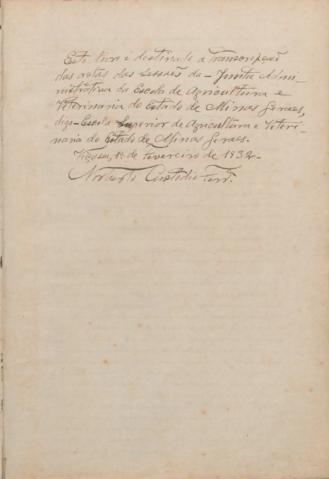 Este livro é destinado a transcripção
das actas das sessões da - Junta Admi-
nistrativa da Escola de Agricultura e
Veterinaria do Estado de Minas Geraes,
digo - Escola Superior de Agricultura e Veteri-
naria do Estado de Minas Geraes.
Viçosa, 1º de Fevereiro de 1932.
Norberto Custodio Ferr.ª